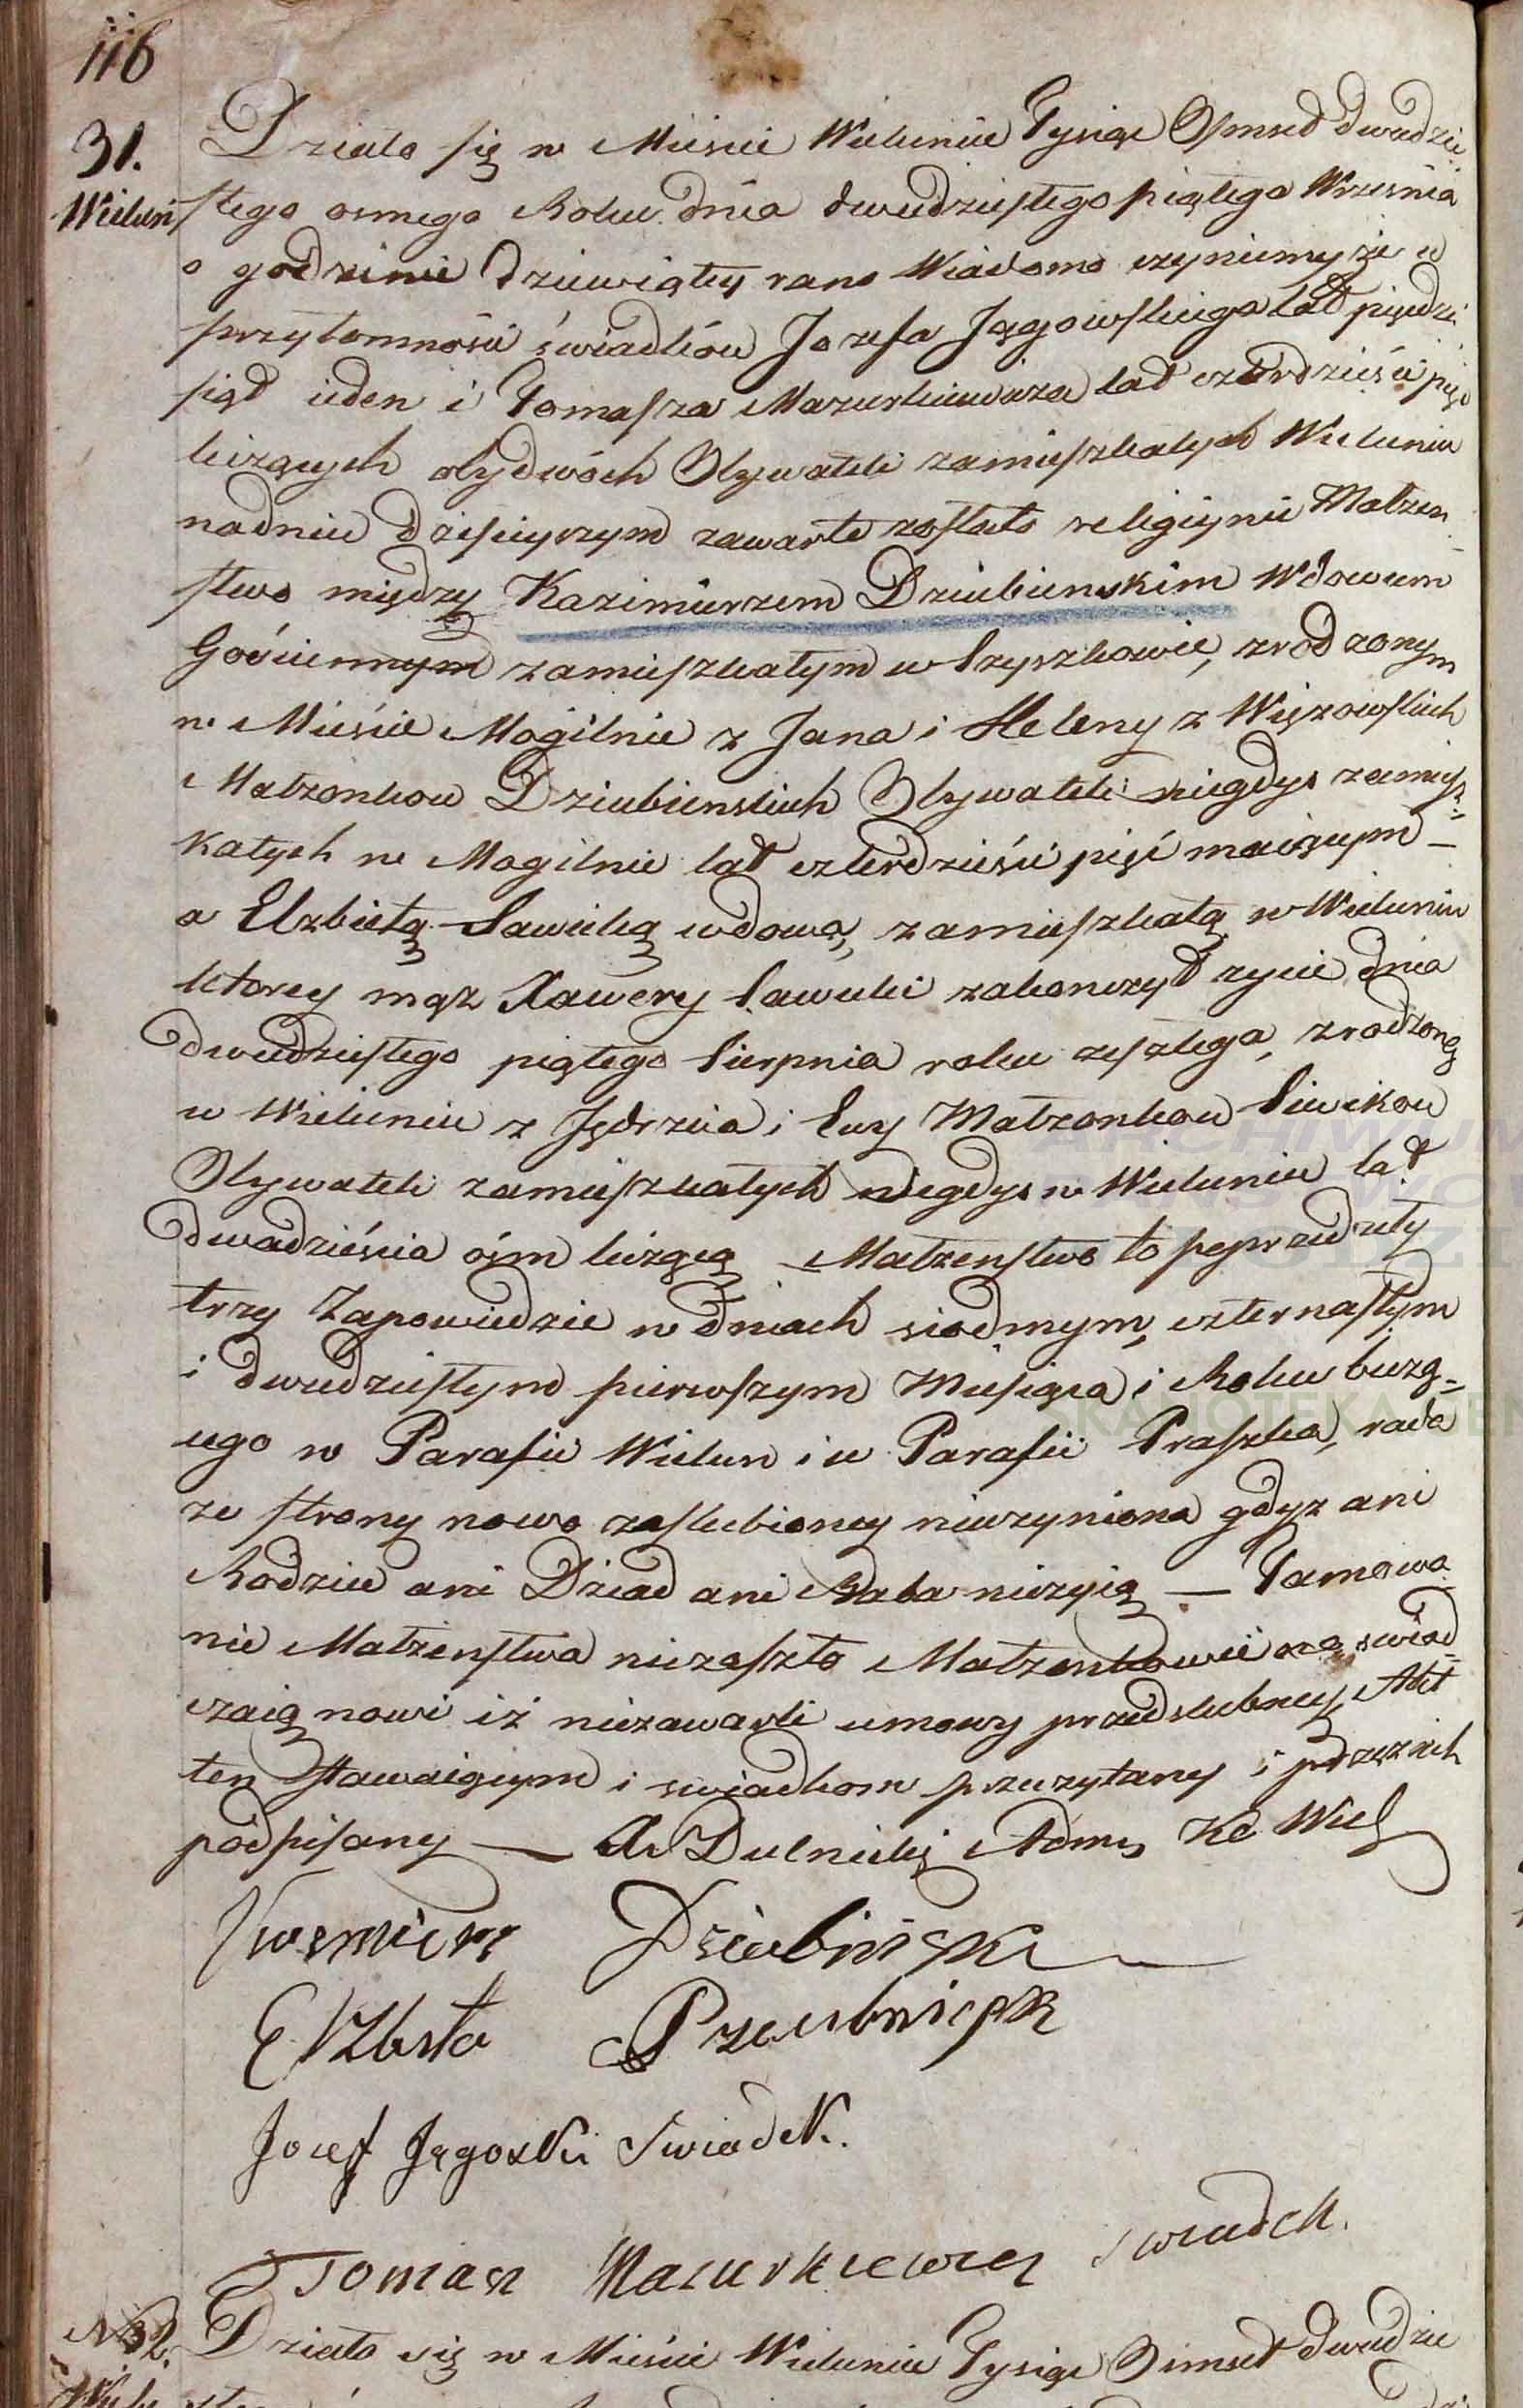 116
31.
Wieluń
Działo się w Mieście Wieluniu Tysiąc Osmset dwudzie
stego osmego Roku dnia dwudziestego piątego Wrzesnia
o godzinie dziewiątey rano Wiadomo czyniemy że w
przytomności świadków Jozefa Jęgowskiego lat pięćdzie
siąt ieden i Tomasza Mazurkiewicza lat czterdzieści pięć
liczących obydwóch Obywateli zamieszkałych Wieluniu
nadniu dzisieyszym zawarte zostało religiynie Małżen
stwo między Kazimierzem Dziubienskim Wdowcem
Gościnnym zamieszkałym w Szyszkowie, zrodzonym
w Mieście Mogilnie z Jana i Heleny z Więzowskich
Małzonkow Dziubienskich Obywateli niegdys zamiesz=
kałych w Mogilnie lat czterdzieści pięć maiącym —
a Elzbietą Sawicką wdową, zamieszkałą w Wieluniu
ktorey mąż Xawery Sawicki zakonczył zycie dnia
dwudziestego piątego Sierpnia roku zeszłego, zrodzoną
w Wieluniu z Jędrzeia i Ewy Małzonkow Siwikow
Obywateli zamieszkałych niegdys w Wieluniu lat
dwadzieścia ośm liczącą — Małzenstwo to poprzedziły
trzy Zapowiedzie w dniach siodmym, czternastym
i dwudziestym pierwszym Miesiąca i Roku bieżą=
cego w Parafii Wielun i w Parafii Praszka, rada
ze strony nowo zaslubioney nieczyniona gdyz ani
Rodzice ani Dziad ani Baba nieżyią — Tamowa
nie Małzenstwa niezaszło Małzonkowie oswiad=
czaią nowi iż niezawarli umowy przedslubney, Akt
ten Stawaiącym i swiadkom przeczytany i przez nich
podpisany — X. Dulnicki Adm. Kc Wiel
Kazmierz Dziubinski
Elzbita Dziubinsk
Jozef Jęgoski Swiadek.
Tomasz Mazurkiewicz swiadek.
N 32.
Działo się w Mieście Wieluniu Tysiąc Osmset dwudzie